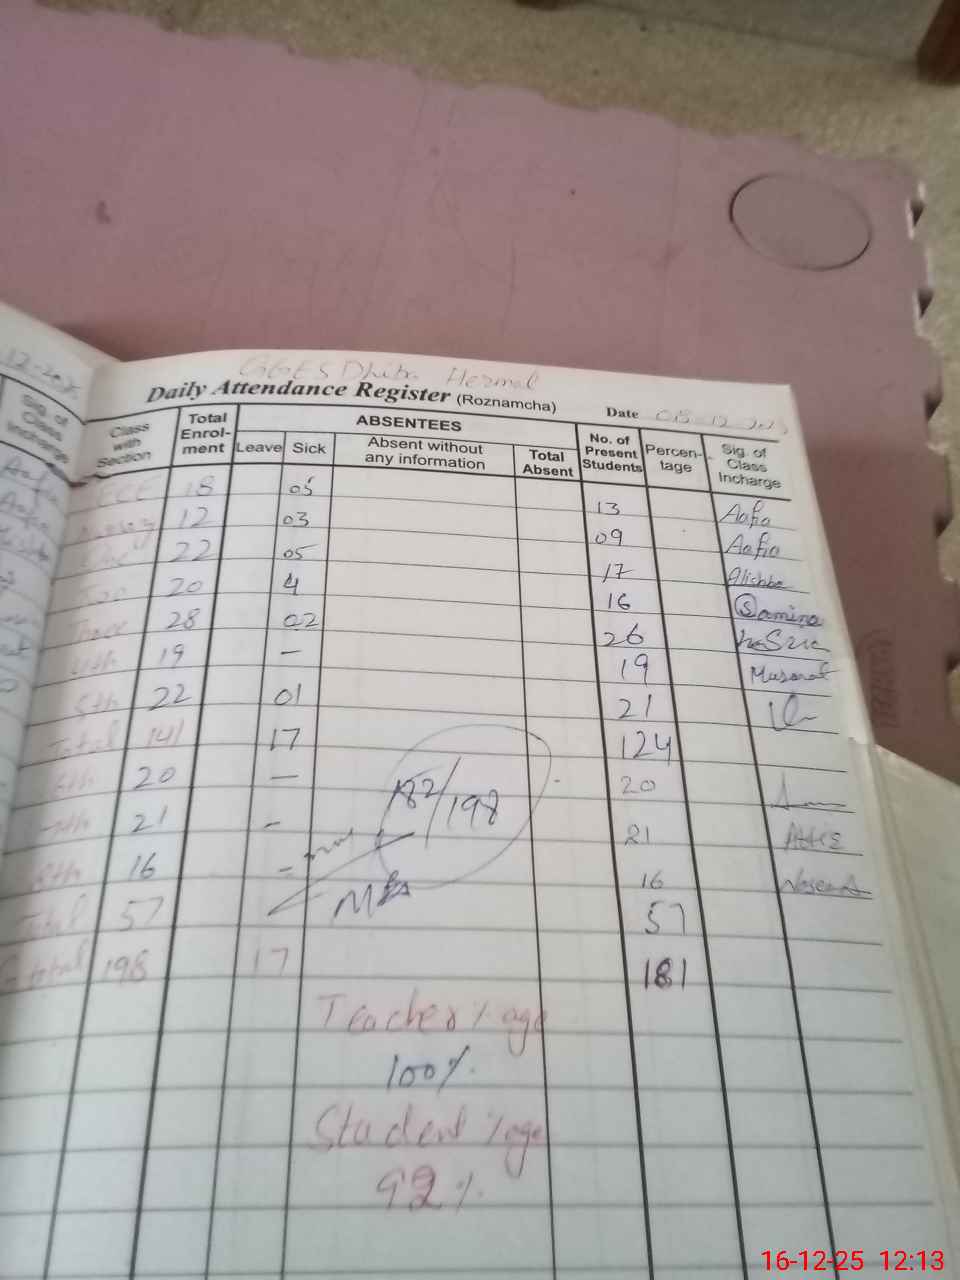 GGES Dhibba Hermal
Daily Attendance Register (Roznamcha) Date 08-12-202
Class with Section Total Enrol-ment ABSENTEES Leave Sick Absent without any information Total Absent No. of Present Students Percen-tage Sig. of Class Incharge
ECE 18 05 13 Aafia
Nursery 12 03 09 Aafia
One 22 05 17 Alishba
Two 20 4 16 Samina
Three 28 02 26
4th 19 – 19 Musarat
5th 22 01 21
Total 141 17 124
6th 20 – 20
7th 21 – 21
8th 16 – 16
182/198
Total 57 57
G.total 198 17 181
Teacher %age
100%
Student %age
92%
Sig. of Class Incharge
16-12-25 12:13